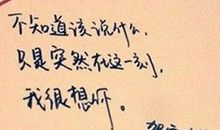 不知道该说什么，
只是突然在这一刻，
我很想你。